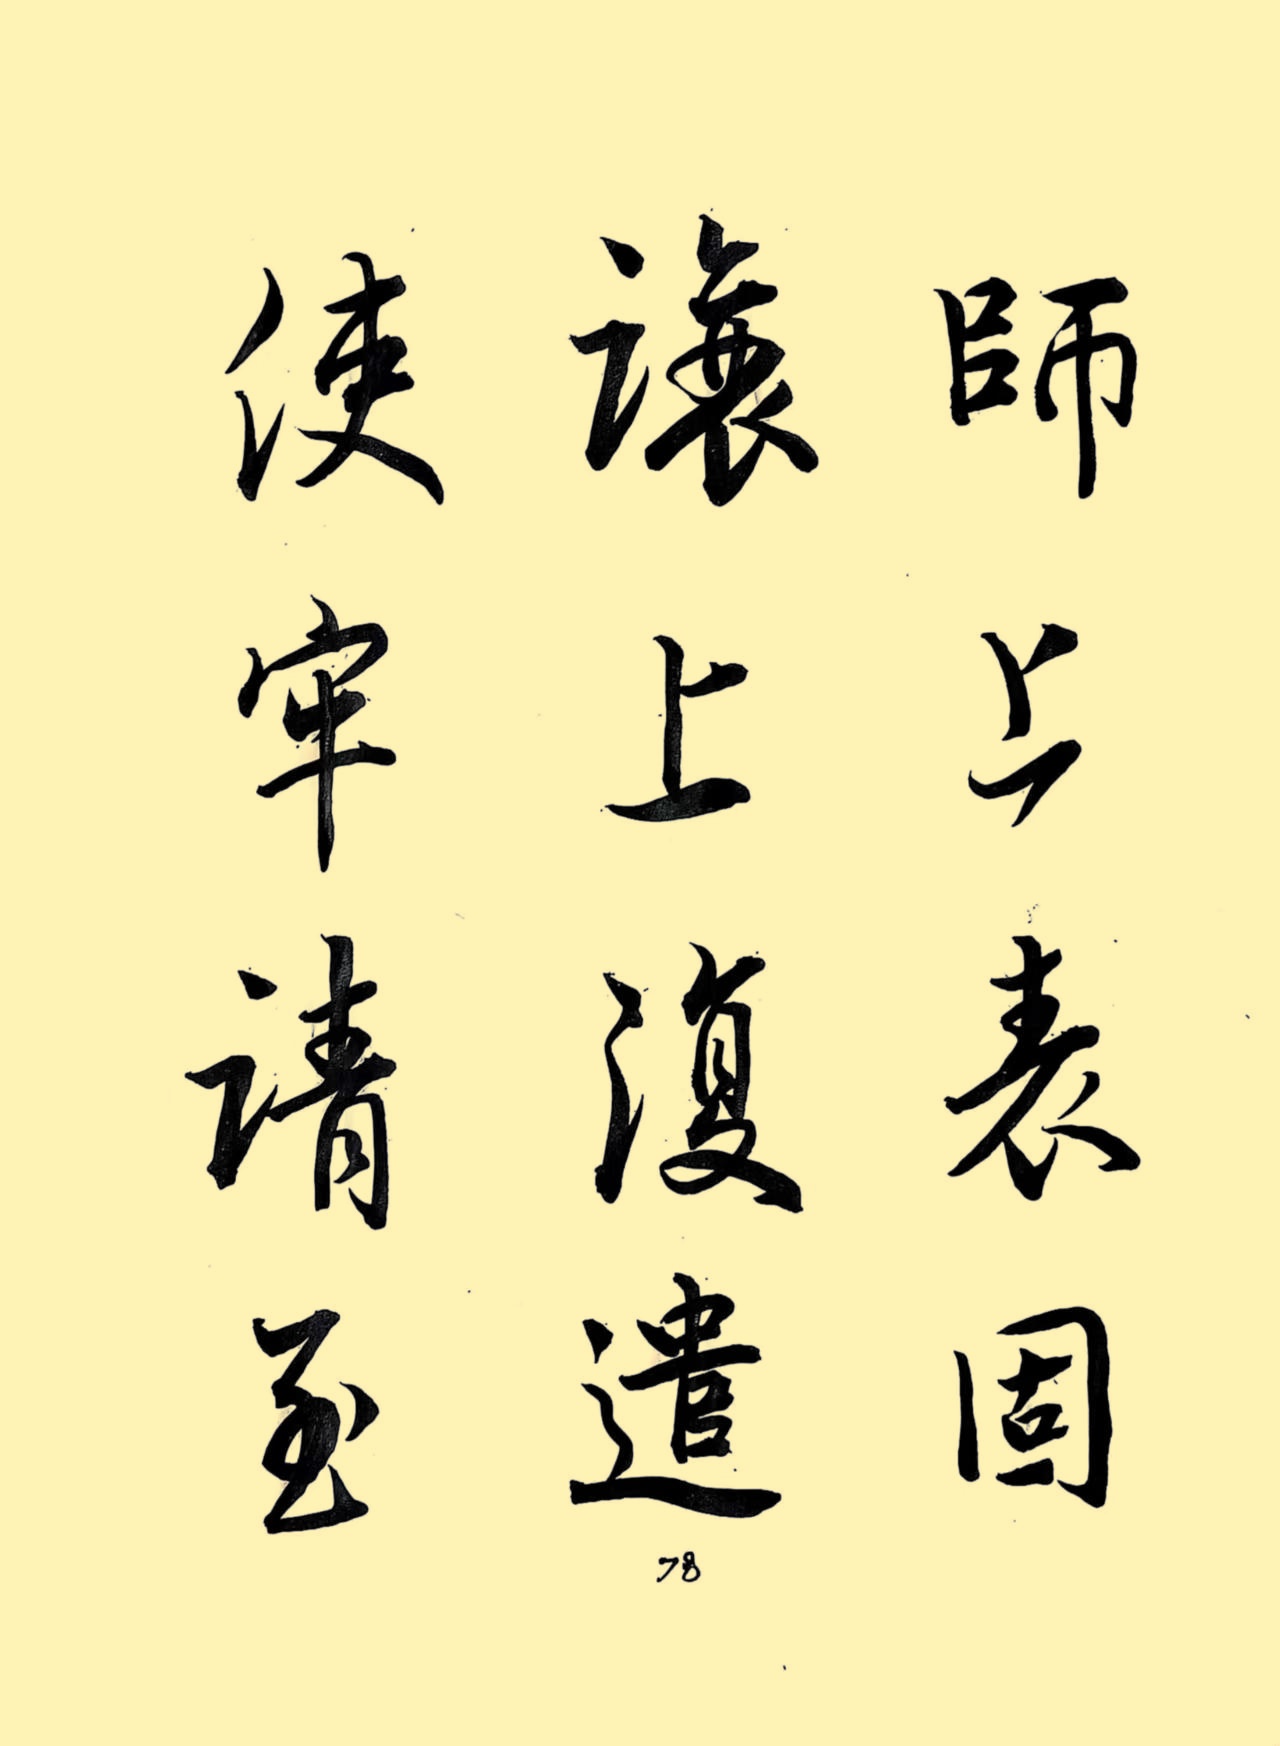 師上表固
讓上復遣
使牢請至
78